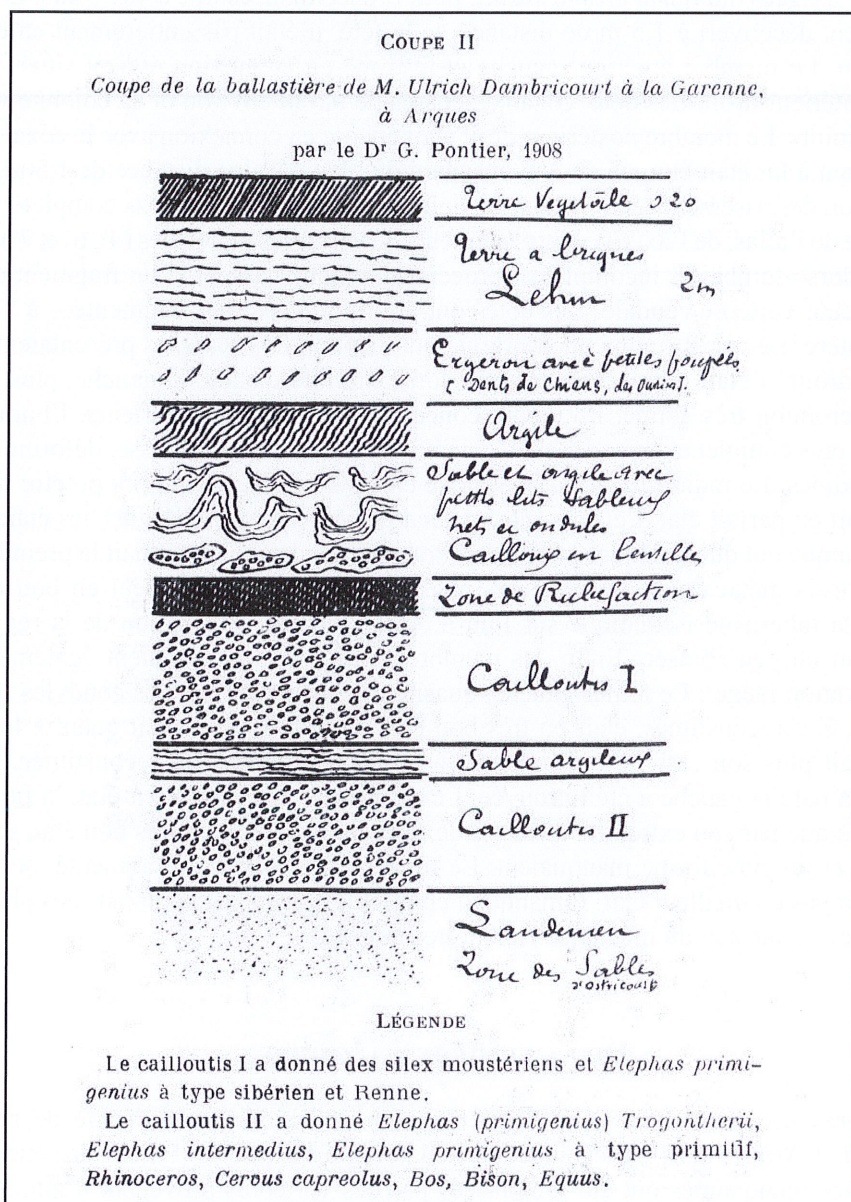 COUPE II
Coupe de la ballastière de M. Ulrich Dambricourt à la Garenne,
à Arques
par le Dr G. Pontier, 1908
Terre Vegetale 0 20
Terre a briques
Lehm 2m
Ergeron avec petites poupées
( Dents de Chiens, des
Argile
Sable et argile avec
petits lits Sableux
nets et ondulés
Cailloux en lentilles
Zone de Rubefaction
Cailloutis I
Sable argileux
Cailloutis II
Landenien
Zone des Sables
d'Ostricourt
LÉGENDE
Le cailloutis I a donné des silex moustériens et Elephas primi-
genius à type sibérien et Renne.
Le cailloutis II a donné Elephas (primigenius) Trogontherii,
Elephas intermedius, Elephas primigenius à type primitif,
Rhinoceros, Cervus capreolus, Bos, Bison, Equus.